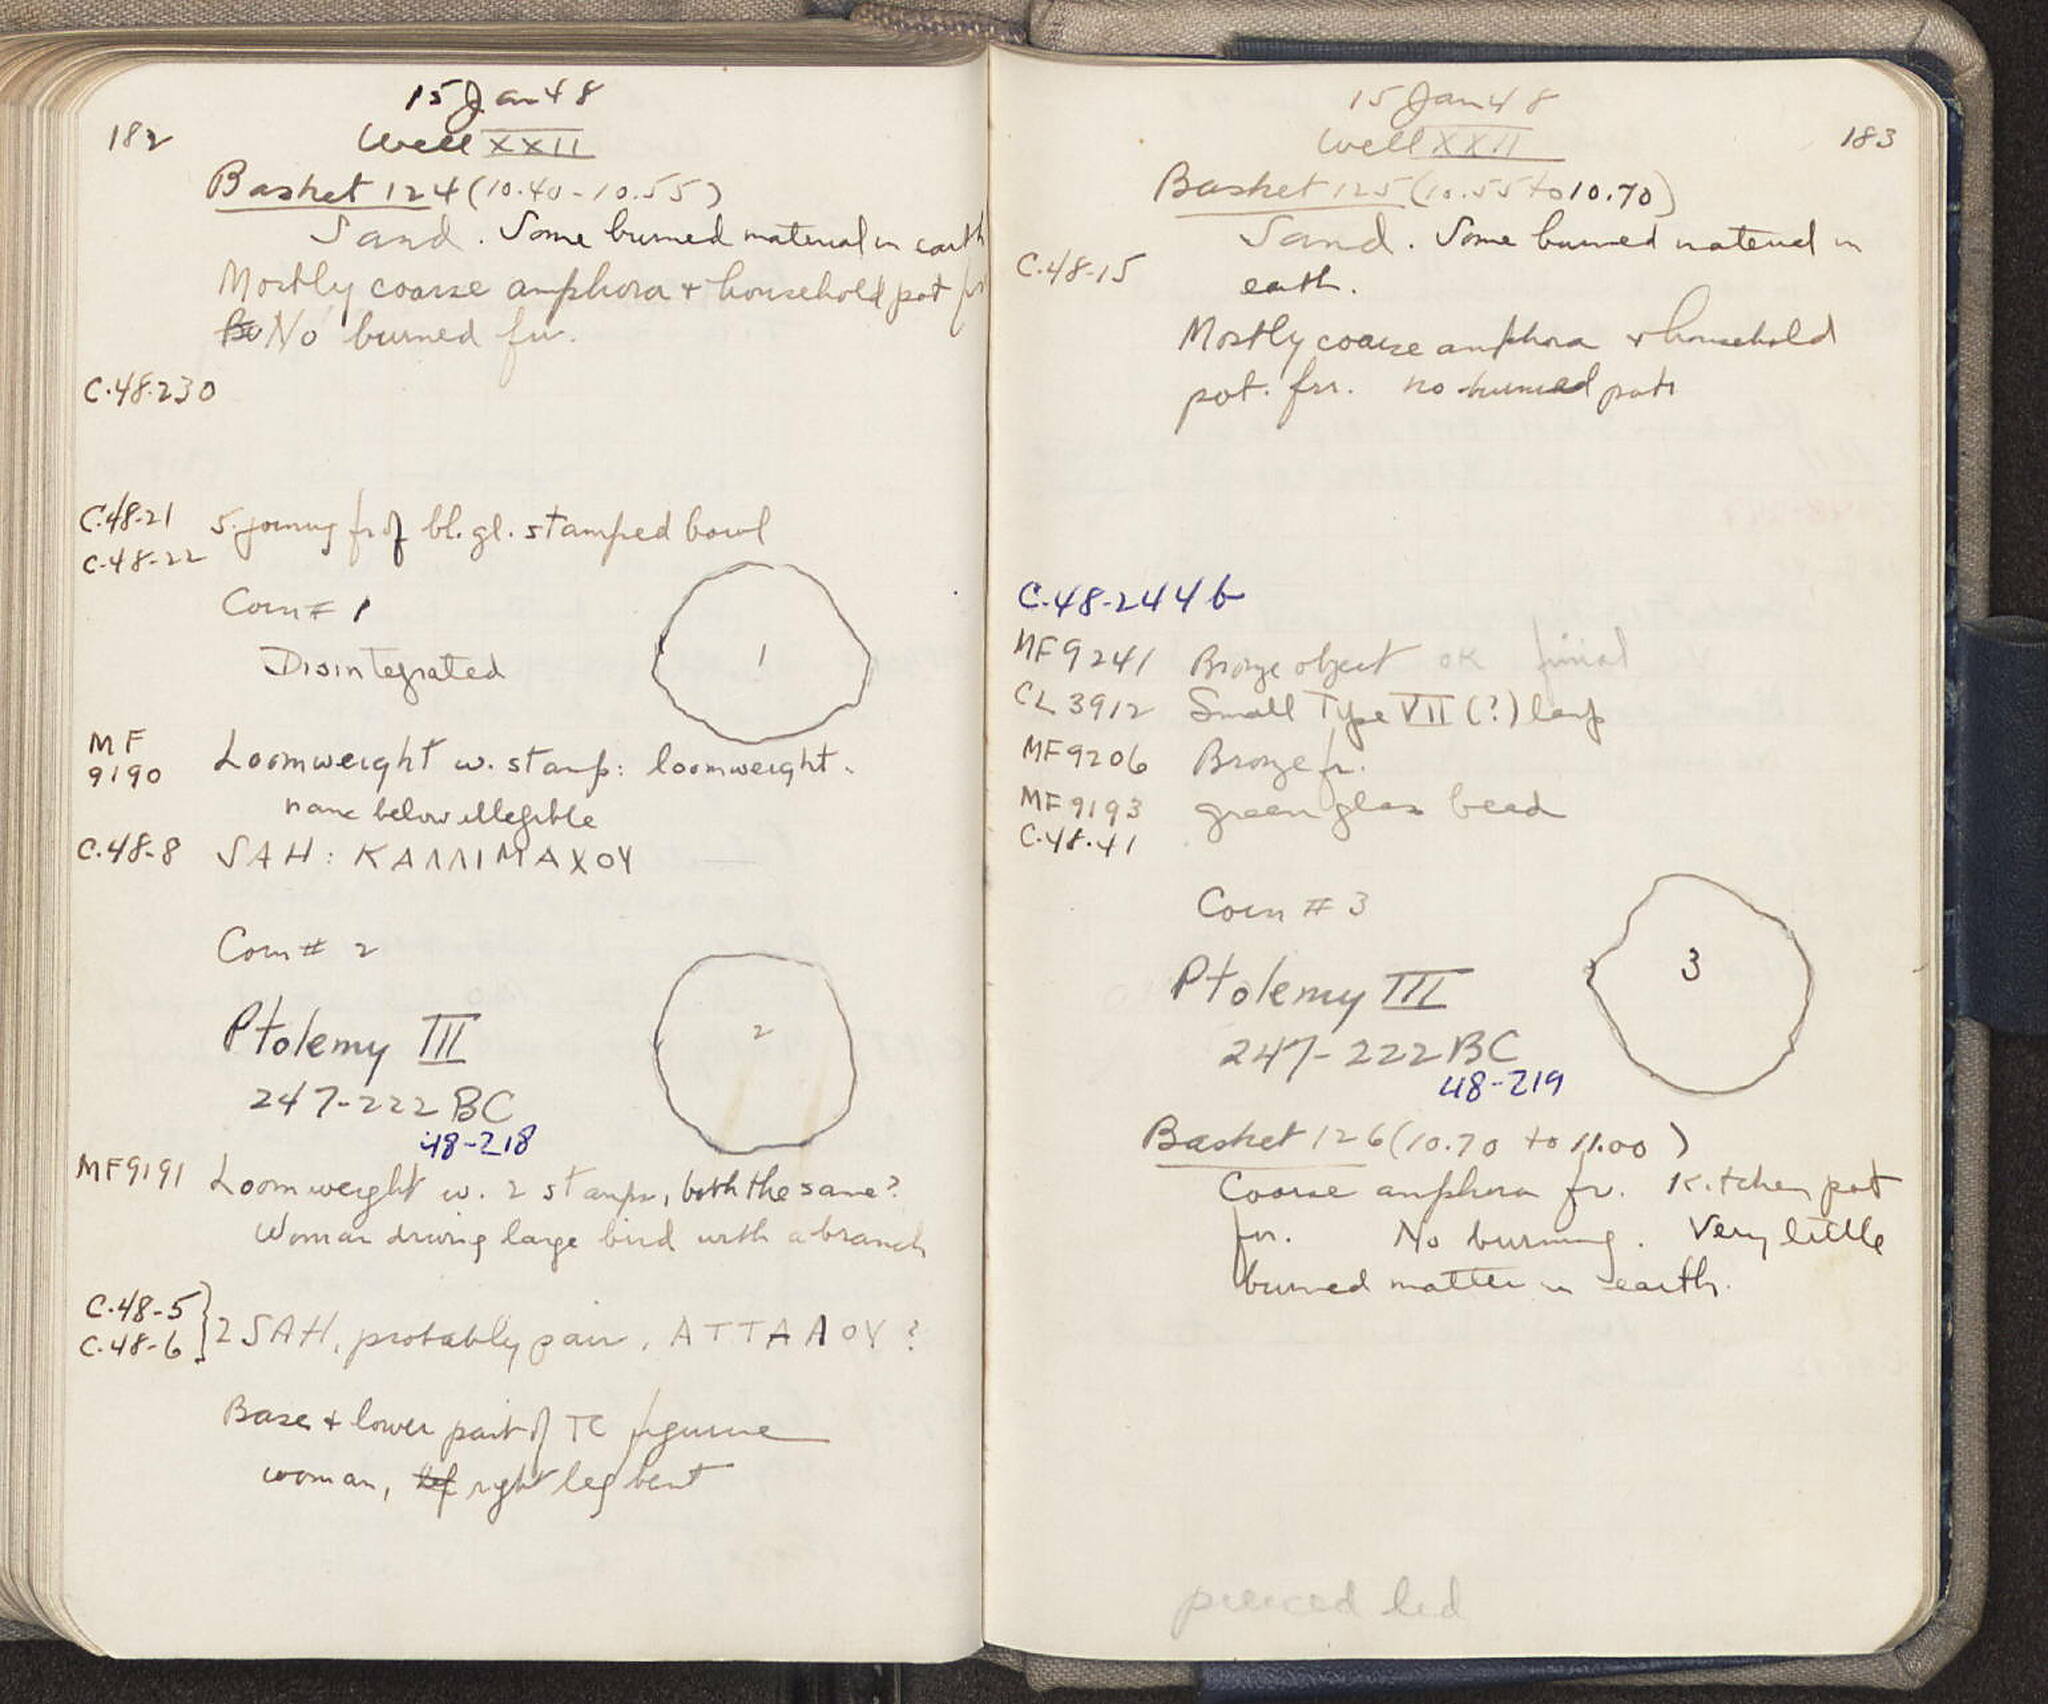 182
15 Jan 48
Well XXII
Basket 124 (10.40 - 10.55)
Sand. Some burned material in earth
Mostly coarse amphora + household pot fr
No burned fr.
C.48.230
C.48-21 5 joining fr of bl. gl. stamped bowl
C-48-22
Coin # 1
Disintegrated
1
MF 9190 Loomweight w. stamp: loomweight.
name below illegible
C.48-8 SAH: ΚΑΛΛΙΜΑΧΟΥ
Coin # 2
2
Ptolemy III
247-222 BC
48-218
MF9191 Loomweight w. 2 stamps, both the same?
Woman driving large bird with a branch
C.48-5
C.48-6 } 2 SAH, probably pair, ΑΤΤΑΛΟΥ ?
Base + lower part of TC figurine
woman, lef right leg bent
15 Jan 48
183
Well XXII
Basket 125 (10.55 to 10.70)
Sand. Some burned material in
C.48-15 earth.
Mostly coarse amphora + household
pot. frr. no burned pots
C.48-244 b
MF9241 Bronze object OK finial
CL 3912 Small Type VII (?) lamp
MF9206 Bronze fr.
MF9193 green glass bead
C.48.41
Coin # 3
3
Ptolemy III
247-222 BC
48-219
Basket 126 (10.70 to 11.00)
Coarse amphora fr. Kitchen pot
fr. No burning. Very little
burned matter in earth.
pierced lid